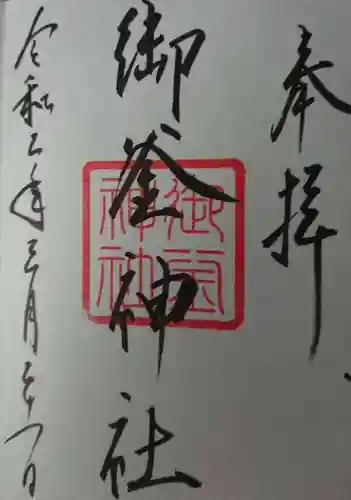 奉拝
御釜神社
御釜神社
令和二年三月二十一日